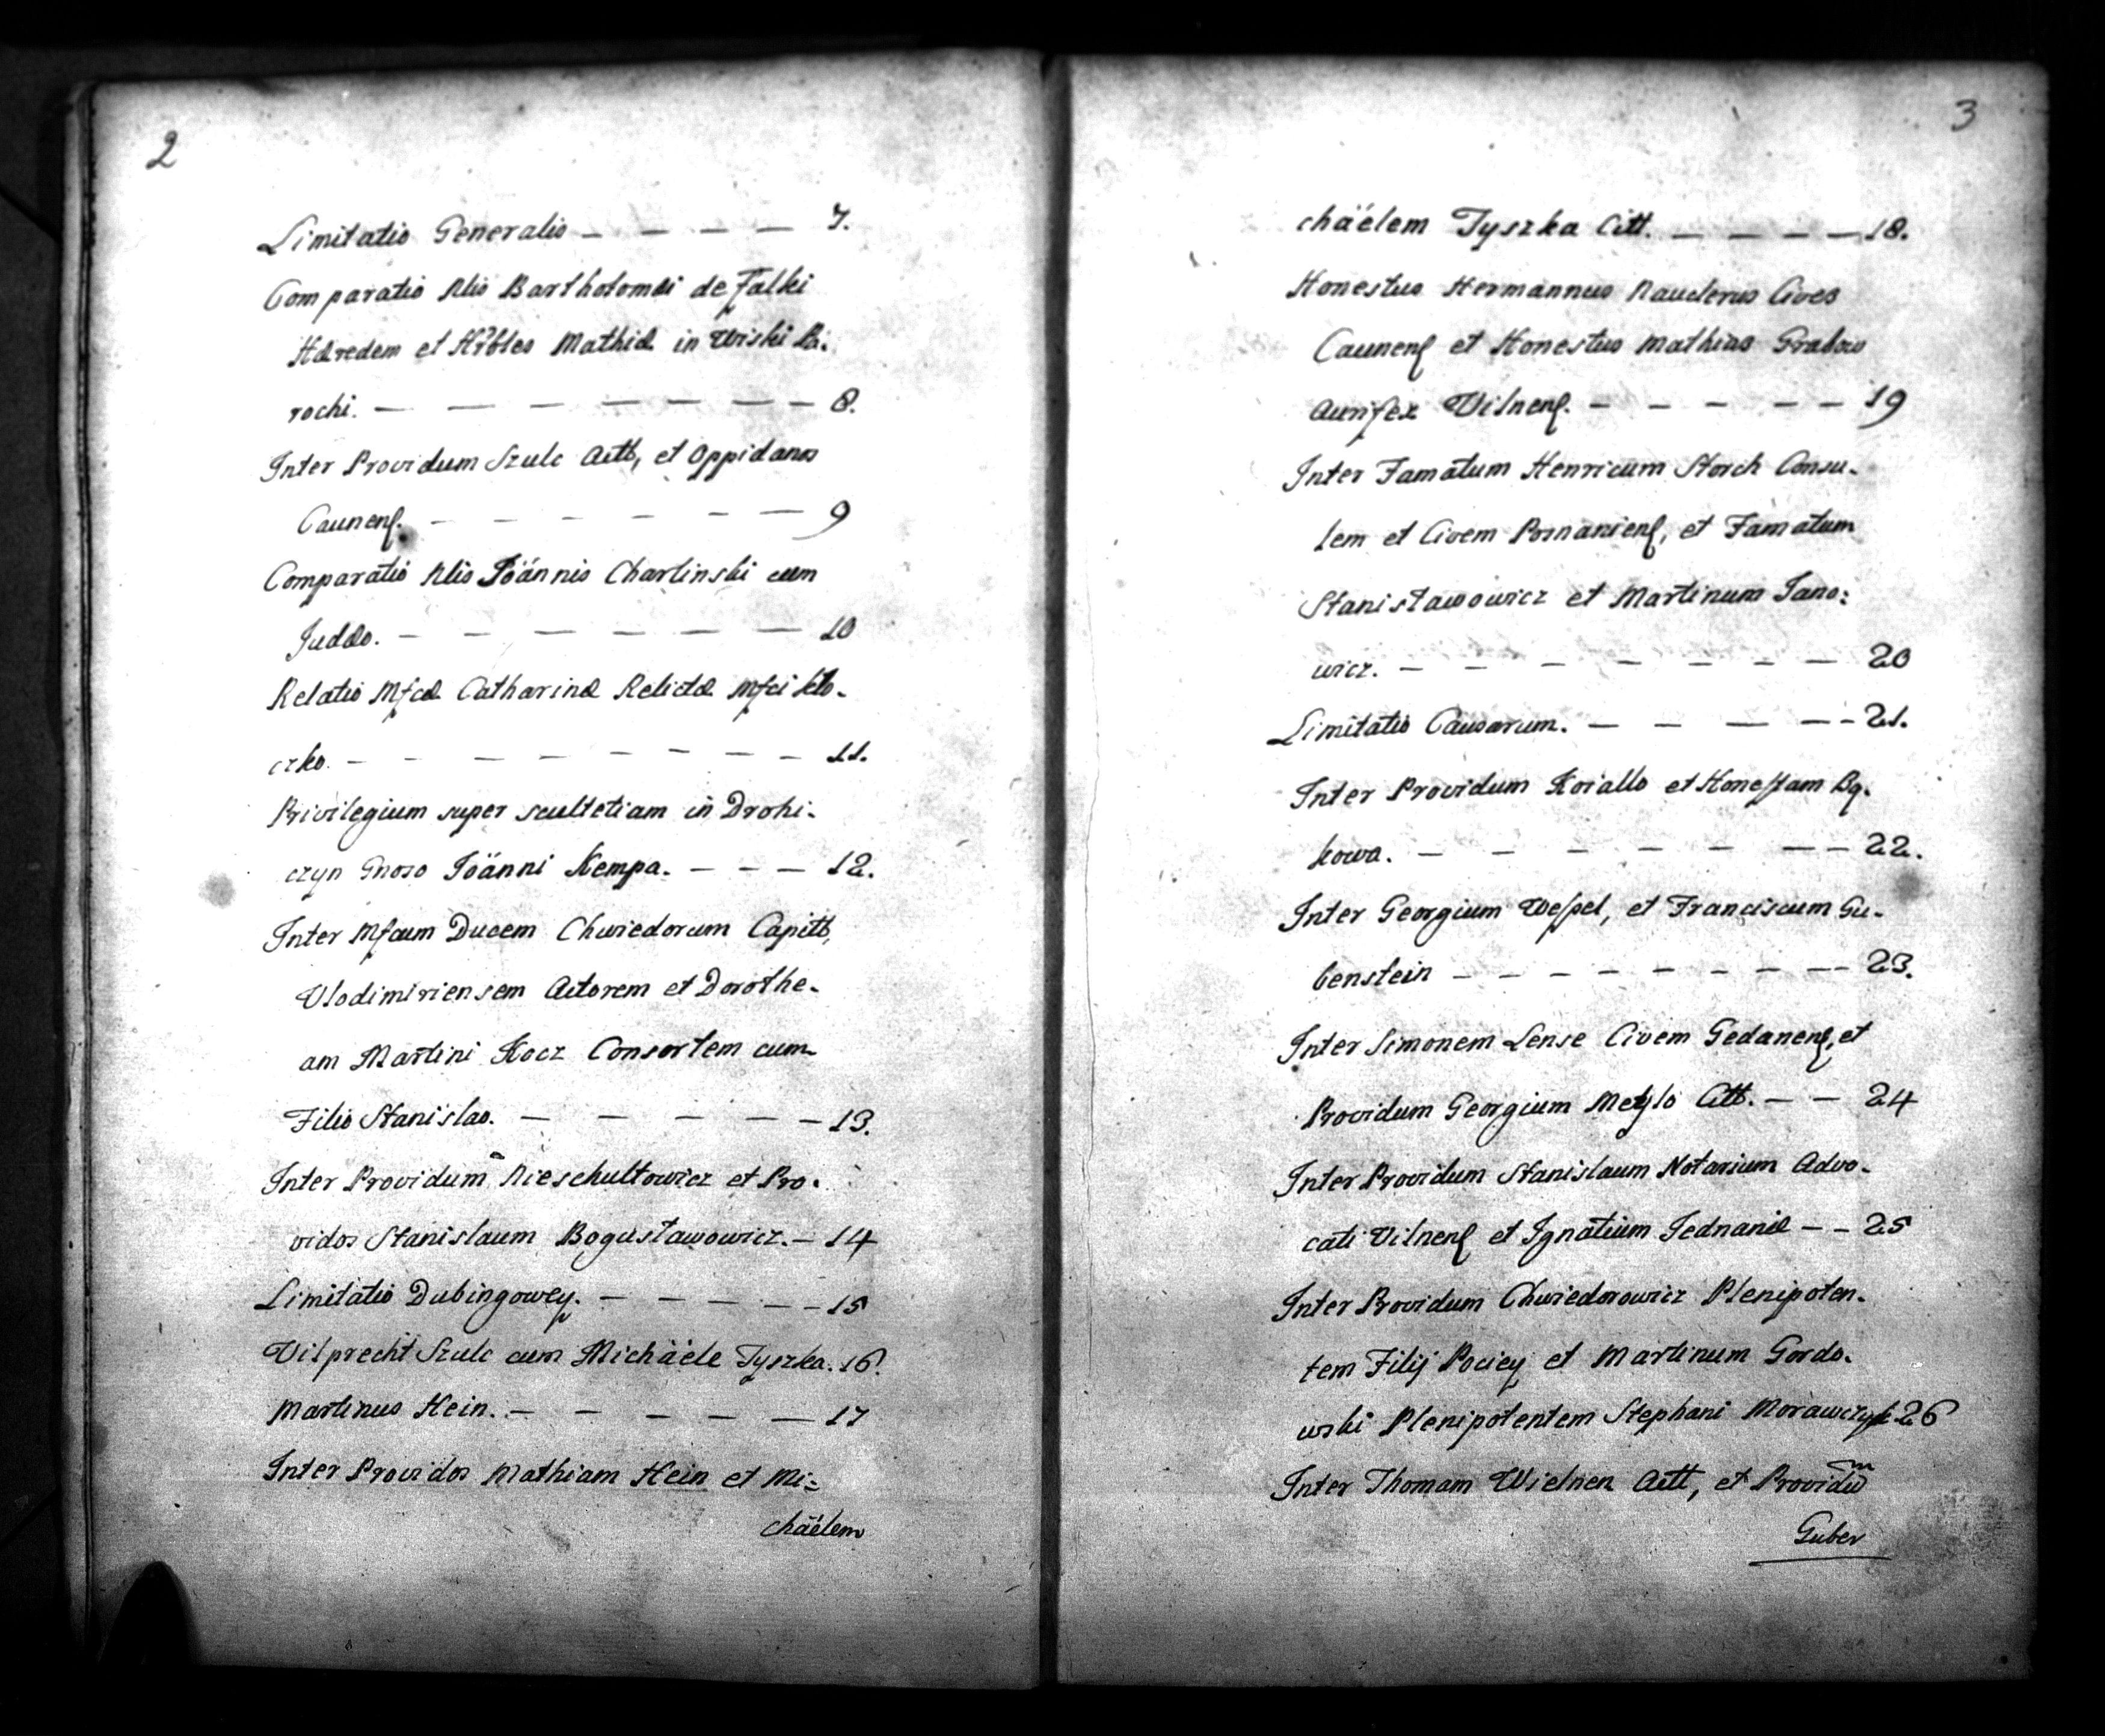 2
Limitatio Generalis — — — — 7.
Comparatio Nlis Bartholomæi de Falki
Hæredem et Hỹbles Mathiæ in Wiski Pi.
rochi. — — — — — — — 8.
Inter Providum Szulc Actt, et Oppidanos
Caunenſ. — — — — — — 9
Comparatio Nlis Joännis Charlinski cum
Judæo. — — — — — — 10
Relatio Mfcæ Catharinæ Relictæ Mfci Klo-
czko. — — — — — — — — 11.
Privilegium super scultetiam in Drohi-
czyn Gnoso Joänni Kempa. — — — 12.
Inter Mfcum Ducem Chwiedorum Capitt,
Vlodimiriensem Actorem et Dorothe-
am Martini Kocz Consortem cum
Filio Stanislao. — — — — — 13.
Inter Providum Nieschultowicz et Pro.
vidos Stanislaum Bogustawowicz. — 14
Limitatio Dubingowey. — — — — — 15
Vilprecht Szulc cum Michäele Tyszka. 16.
Martinus Hein. — — — — — 17
Inter Providos Mathiam Hein et Mi:
chäelem
3
chäelem Tyszka Citt. — — — — 18.
Honestus Hermannus Nauderus Cives
Caunenſ et Honestus Mathias Grabow
Aurifex Vilnenſ. — — — — — 19
Inter Famatum Henricum Storch Consu-
lem et Civem Posnanienſ, et Famatum
Stanistawowicz et Martinum Jano:
wicz. — — — — — — — 20
Limitatio Causarum. — — — — — 21.
Inter Providum Koiallo et Honeſtam Bą.
kowa. — — — — — — — 22.
Inter Georgium Weſsel, et Franciscum Gu-
benstein — — — — — — — — 23.
Inter Simonem Lense Civem Gedanenſ, et
Providum Georgium Meylo Citt. — — 24
Inter Providum Stanislaum Notarium Advo-
cati Vilnenſ et Ignatium Jednanie — — 25
Inter Providum Chwiedorowicz Plenipoten-
tem Filij Pociey et Martinum Gordo-
wski Plenipotentem Stephani Morawczyk 26
Inter Thomam Wielnen Actt, et Providũ
Guber